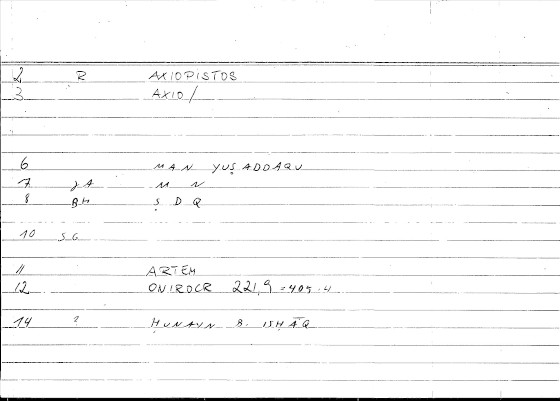 2 R AXIOPISTOS
3 AXIO/
6 MAN YUṢADDAQU
7 JA M N
8 BH Ṣ D Q
10 SG
11 ARTEM
12 ONIROCR 221,9 = 405.4
14 ? ḤUNAYN B. ISḤĀQ